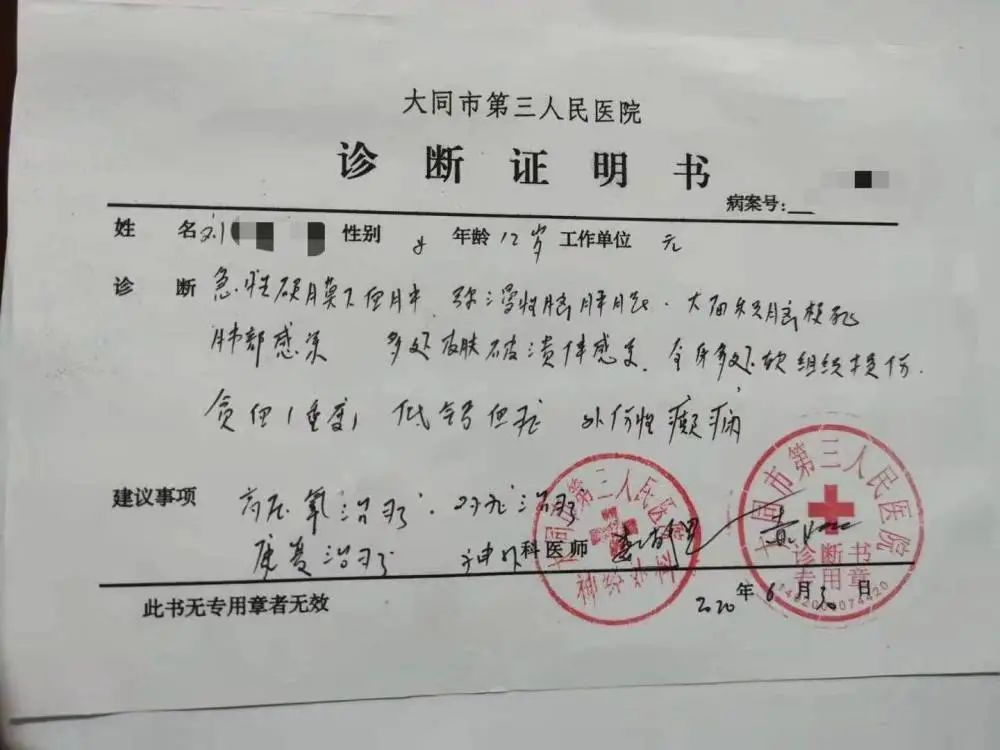 大同市第三人民医院
诊断证明书
病案号:
姓 名 刘 性别 女 年龄 12岁 工作单位 无
诊 断 急性硬膜下血肿、弥漫性脑肿胀、大面积脑梗死
肺部感染 多处皮肤破溃伴感染、全身多处软组织损伤.
贫血(重度) 低钙血症 外伤性癫痫
建议事项 高压氧治疗、对症治疗
康复治疗 神外科医师
大同市第三人民医院
神经外科
大同市第三人民医院
诊断书
专用章
此书无专用章者无效 2020年6月30日